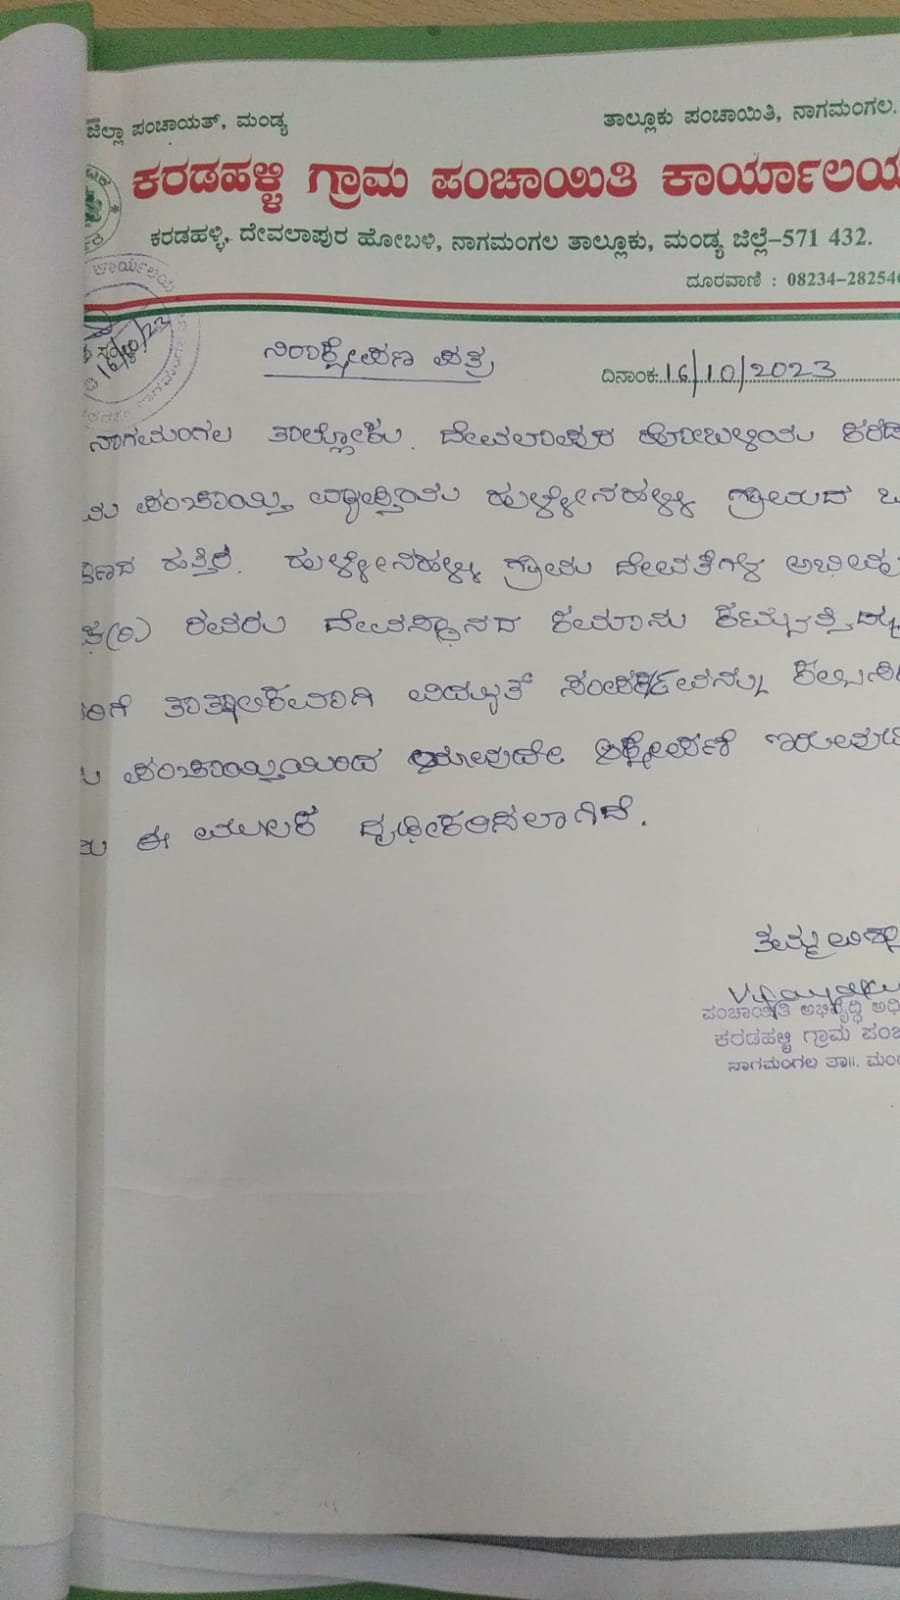 ಜಿಲ್ಲಾ ಪಂಚಾಯತ್, ಮಂಡ್ಯ
ತಾಲ್ಲೂಕು ಪಂಚಾಯಿತಿ, ನಾಗಮಂಗಲ.
ಕರಡಹಳ್ಳಿ ಗ್ರಾಮ ಪಂಚಾಯಿತಿ ಕಾರ್ಯಾಲಯ
ಕರಡಹಳ್ಳಿ, ದೇವಲಾಪುರ ಹೋಬಳಿ, ನಾಗಮಂಗಲ ತಾಲ್ಲೂಕು, ಮಂಡ್ಯ ಜಿಲ್ಲೆ-571 432.
ದೂರವಾಣಿ : 08234-28254
ಕಾರ್ಯಾಲಯ
16/10/23
ನಿರಾಕ್ಷೇಪಣ ಪತ್ರ
ದಿನಾಂಕ: 16/10/2023
ನಾಗಮಂಗಲ ತಾಲ್ಲೋಕು. ದೇವಲಾಪುರ ಹೋಬಳಿಯ ಕರಡ
ಪಂಚಾಯ್ತಿ ವ್ಯಾಪ್ತಿಯ ಹುಳ್ಳೇನಹಳ್ಳಿ ಗ್ರಾಮದ
ಹತ್ತಿರ. ಹುಳ್ಳೇನಹಳ್ಳಿ ಗ್ರಾಮ ದೇವತೆಗಳ
(ರಿ) ರವರು ದೇವಸ್ಥಾನದ ಕಮಾನು
ತಾತ್ಕಾಲಿಕವಾಗಿ ವಿದ್ಯುತ್ ಸಂಪರ್ಕವನ್ನು
ಪಂಚಾಯ್ತಿಯಿಂದ ಯಾವುದೇ ಆಕ್ಷೇಪಣೆ
ಈ ಮುಲಕ ದೃಢೀಕರಿಸಲಾಗಿದೆ.
ತಮ್ಮ ವಿಶ್ವಾ
ಪಂಚಾಯಿತಿ ಅಭಿವೃದ್ಧಿ ಅಧಿ
ಕರಡಹಳ್ಳಿ ಗ್ರಾಮ ಪಂಚ
ನಾಗಮಂಗಲ ತಾ||. ಮಂ